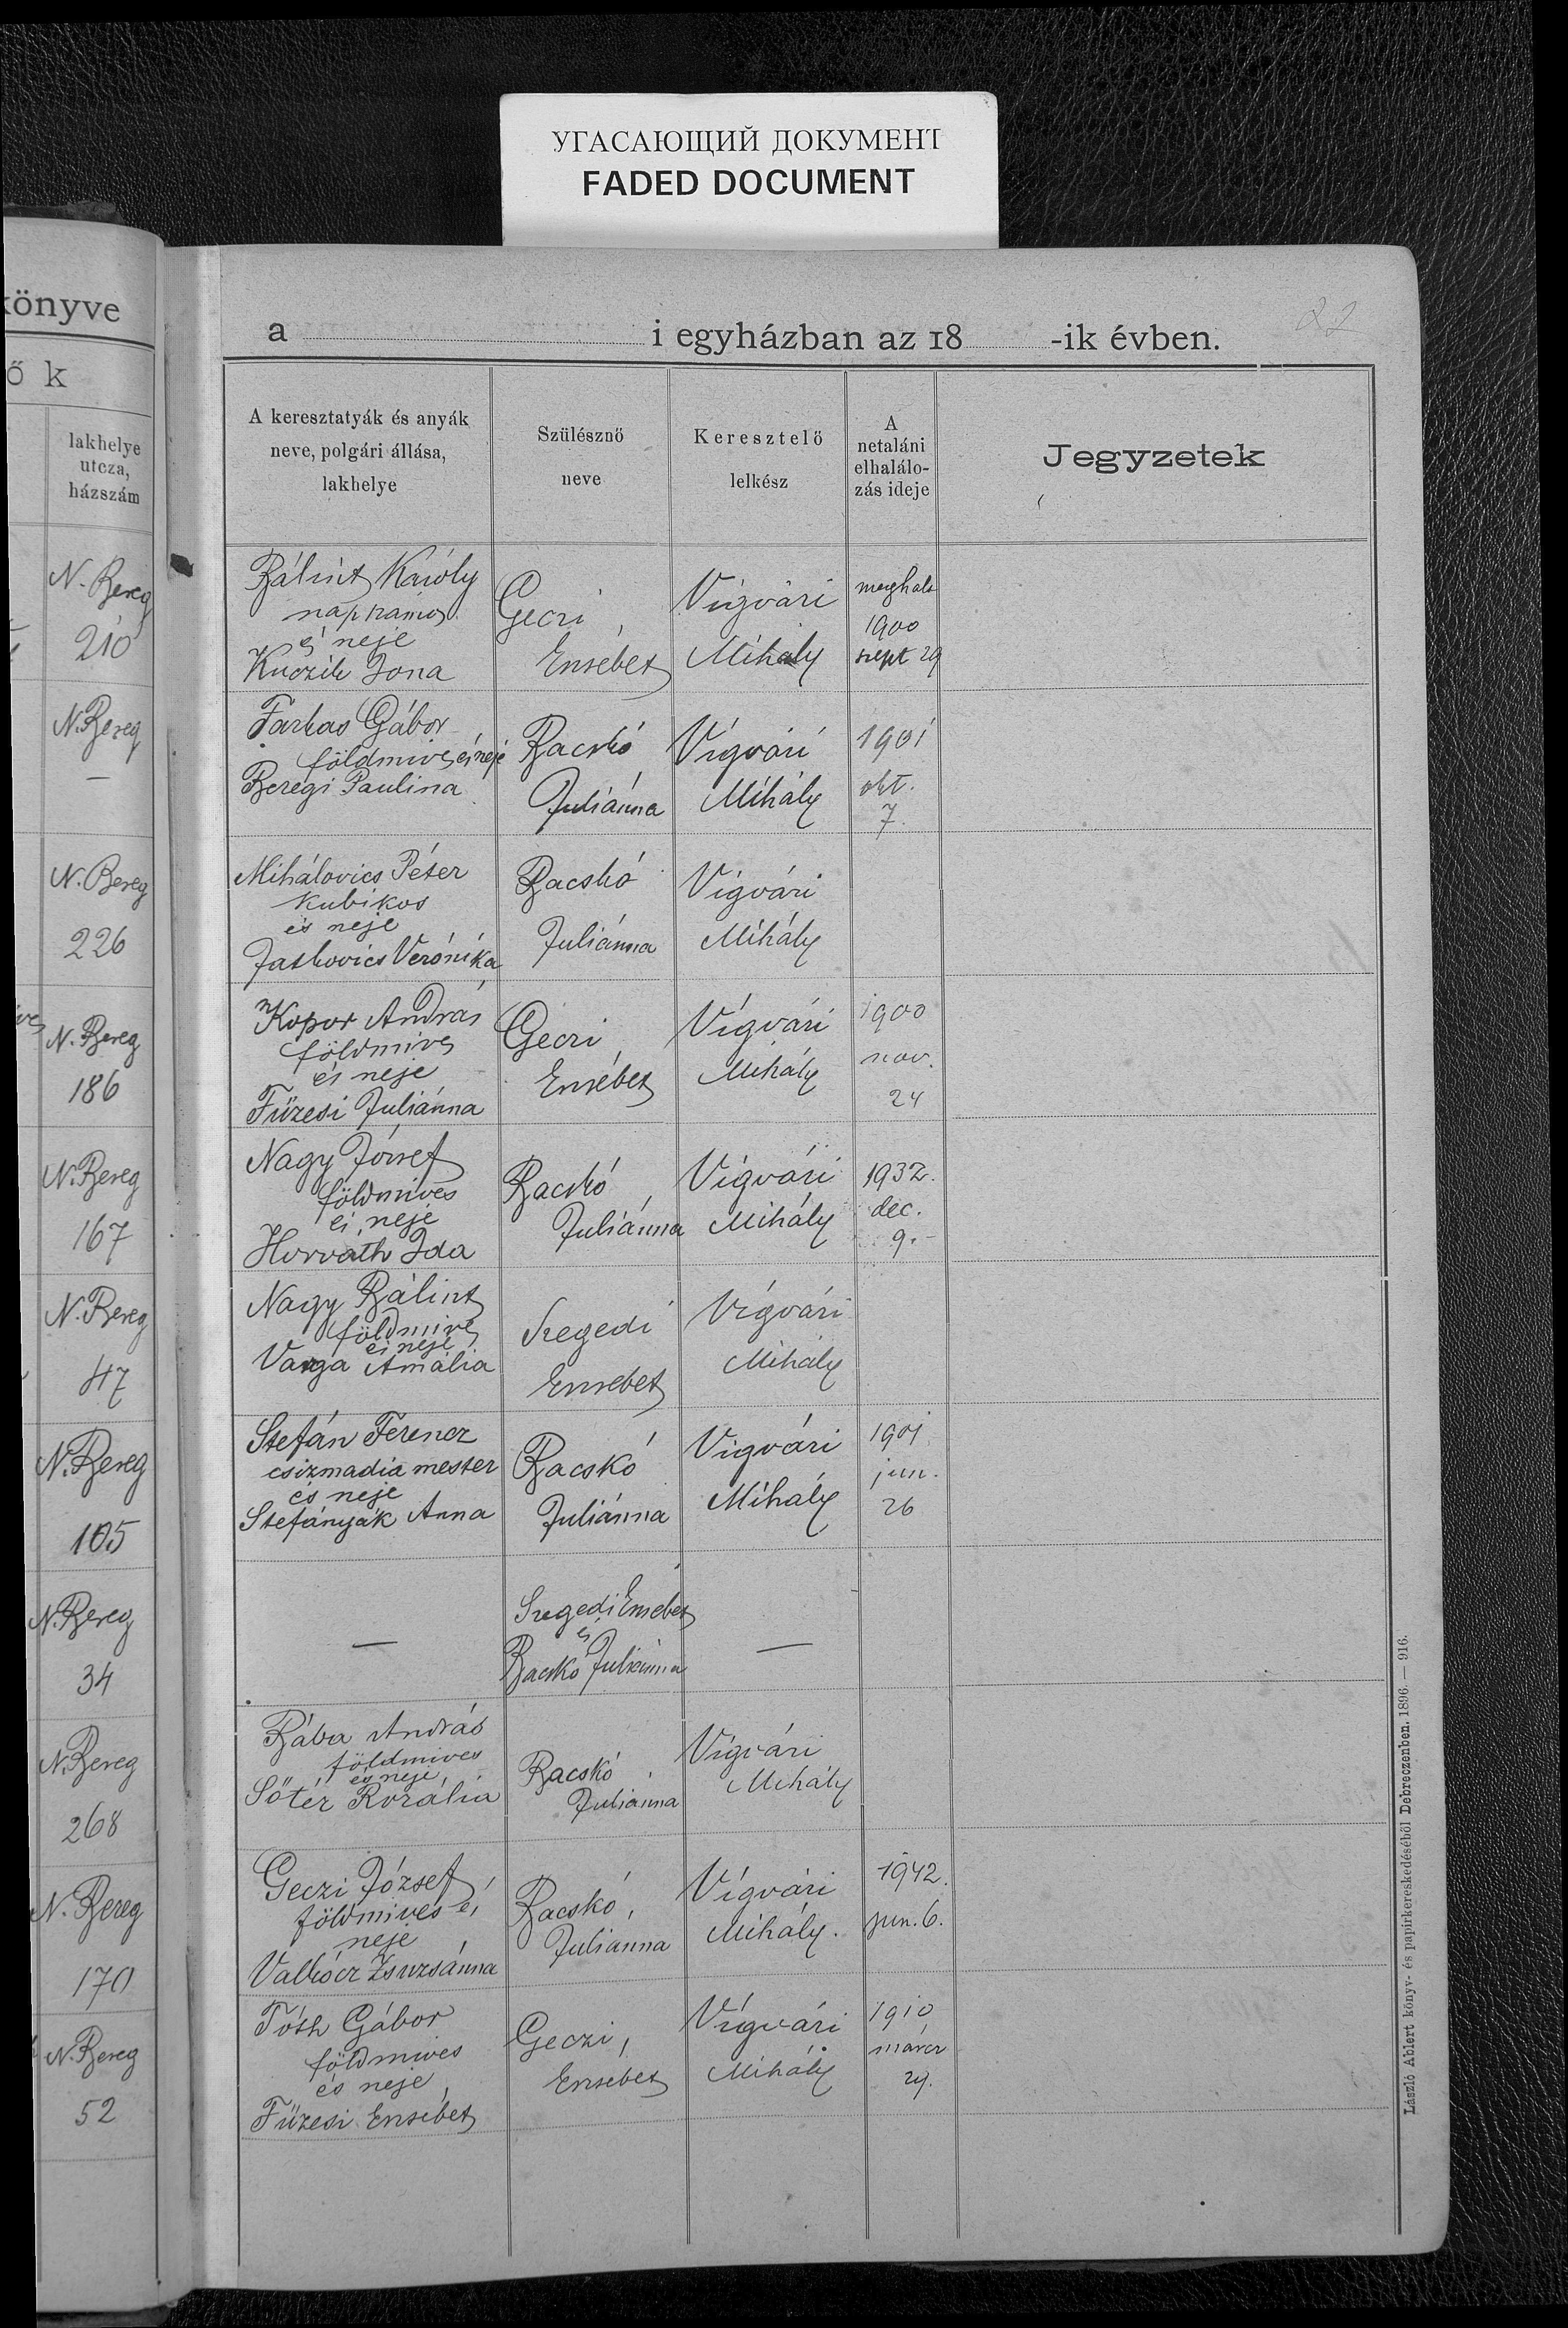 УГАСАЮЩИЙ ДОКУМЕНТ
FADED DOCUMENT
könyve
ő k
lakhelye
utcza,
házszám
N. Bereg
210
N. Bereg
—
N. Bereg
226
N. Bereg
186
N. Bereg
167
N. Bereg
47
N. Bereg
105
N. Bereg
34
N. Bereg
268
N. Bereg
170
N. Bereg
52
22
a i egyházban az 18 -ik évben.
A keresztatyák és anyák
neve, polgári állása,
lakhelye
Szülésznö
neve
Keresztelö
lelkész
A
netaláni
elhalálo-
zás ideje
Jegyzetek
Bálint Károly
napszámos
és neje
Ilona
Geczi
Erzsébet
Vígvári
Mihály
meghalt
1900
szept 29
Farkas Gábor
földmives és neje
Beregi Paulina
Bacskó
Juliánna
Vígvári
Mihály
1901
okt.
7.
Mihálovics Péter
kubikos
és neje
Jaskovics Verónika
Bacskó
Juliánna
Vígvári
Mihály
Kopor András
földmives
és neje
Füzesi Juliánna
Geczi
Erzsébet
Vígvári
Mihály
1900
nov.
24
Nagy József
földmives
és neje
Horváth Ida
Bacskó
Juliánna
Vígvári
Mihály
1932.
dec.
9.-
Nagy Bálint
földmives
és neje
Varga Amália
Szegedi
Erzsebet
Vígvári
Mihály
Stefán Ferencz
csizmadia mester
és neje
Stefányák Anna
Bacskó
Juliánna
Vígvári
Mihály
1901
jun.
26
—
Szegedi Erzsebet
és
Bacskó Juliánna
—
Bába András
földmives
és neje
Sőtér Rozália
Bacskó
Juliánna
Vígvári
Mihály
Geczi József
földmives és
neje
Valkócz Zsuzsánna
Bacskó
Juliánna
Vígvári
Mihály.
1942.
jun. 6.
Tóth Gábor
földmives
és neje
Füzesi Erzsébet
Geczi
Erzsebet
Vígvári
Mihály
1910
márcz
29.
László Albert könyv- és papirkereskedéséböl Debreczenben. 1896.— 916.